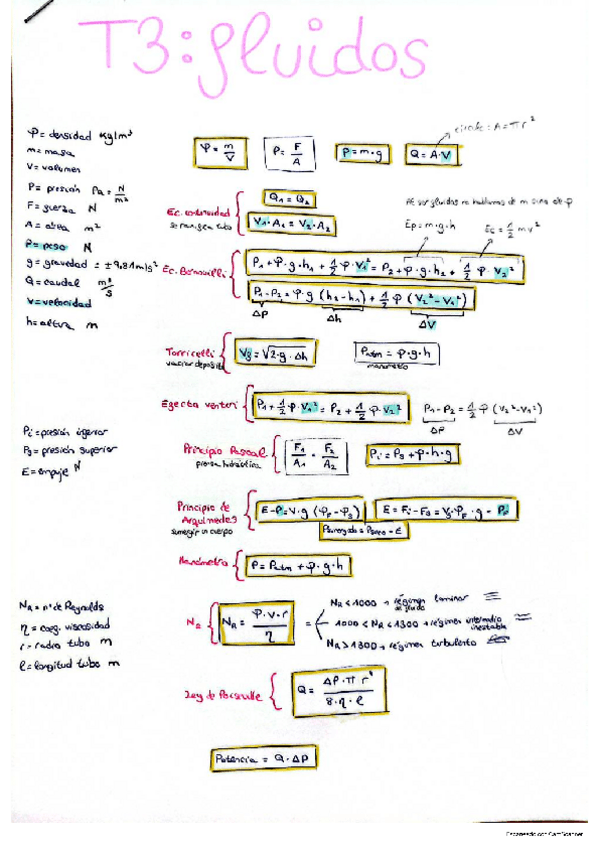 T3: fluidos
φ = densidad kg/m³
m = masa
V = volumen
P = presión Pa = N/m²
F = fuerza N
A = área m²
P = peso N
g = gravedad = ±9,81 m/s²
Q = caudal m³/s
v = velocidad
h = altura m
φ = m/V
P = F/A
P = m·g
Q = A·V
círculo: A = πr²
Ec. continuidad
Q₁ = Q₂
V₁·A₁ = V₂·A₂
AE ser fluidos no hablamos de m sino de φ
Ep = m·g·h
Ec = 1/2 mv²
Ec. Bernouilli
P₁ + φ·g·h₁ + 1/2 φ·V₁² = P₂ + φ·g·h₂ + 1/2 φ·V₂²
P₁ - P₂ = φ·g (h₂ - h₁) + 1/2 φ (V₂² - V₁²)
ΔP Δh ΔV
Torricelli
vaciar depósito
Vg = √2·g·Δh
Patm = φ·g·h
Efecto venturi
P₁ + 1/2 φ·V₁² = P₂ + 1/2 φ·V₂²
P₁ - P₂ = 1/2 φ (V₂² - V₁²)
ΔP ΔV
Pi = presión inferior
Ps = presión superior
E = empuje N
Principio Pascal
prensa hidráulica
F₁/A₁ = F₂/A₂
Pi = Ps + φ·h·g
Principio de
Arquímedes
sumergir un cuerpo
E - P = V·g (φF - φS)
E = Fi - Fs = Vs·φF·g - P
Manómetro
P = Patm + φ·g·h
NR = nº de Reynolds
η = coef. viscosidad
r = radio tubo m
l = longitud tubo m
NR
NR = φ·v·r/η
NR < 1000 → régimen laminar
1000 < NR < 1300 → régimen intermedio
inestable
NR > 1300 → régimen turbulento
Ley de Poiseuille
Q = ΔP·π r⁴/8·η·l
Potencia = Q·ΔP
Escaneado con CamScanner